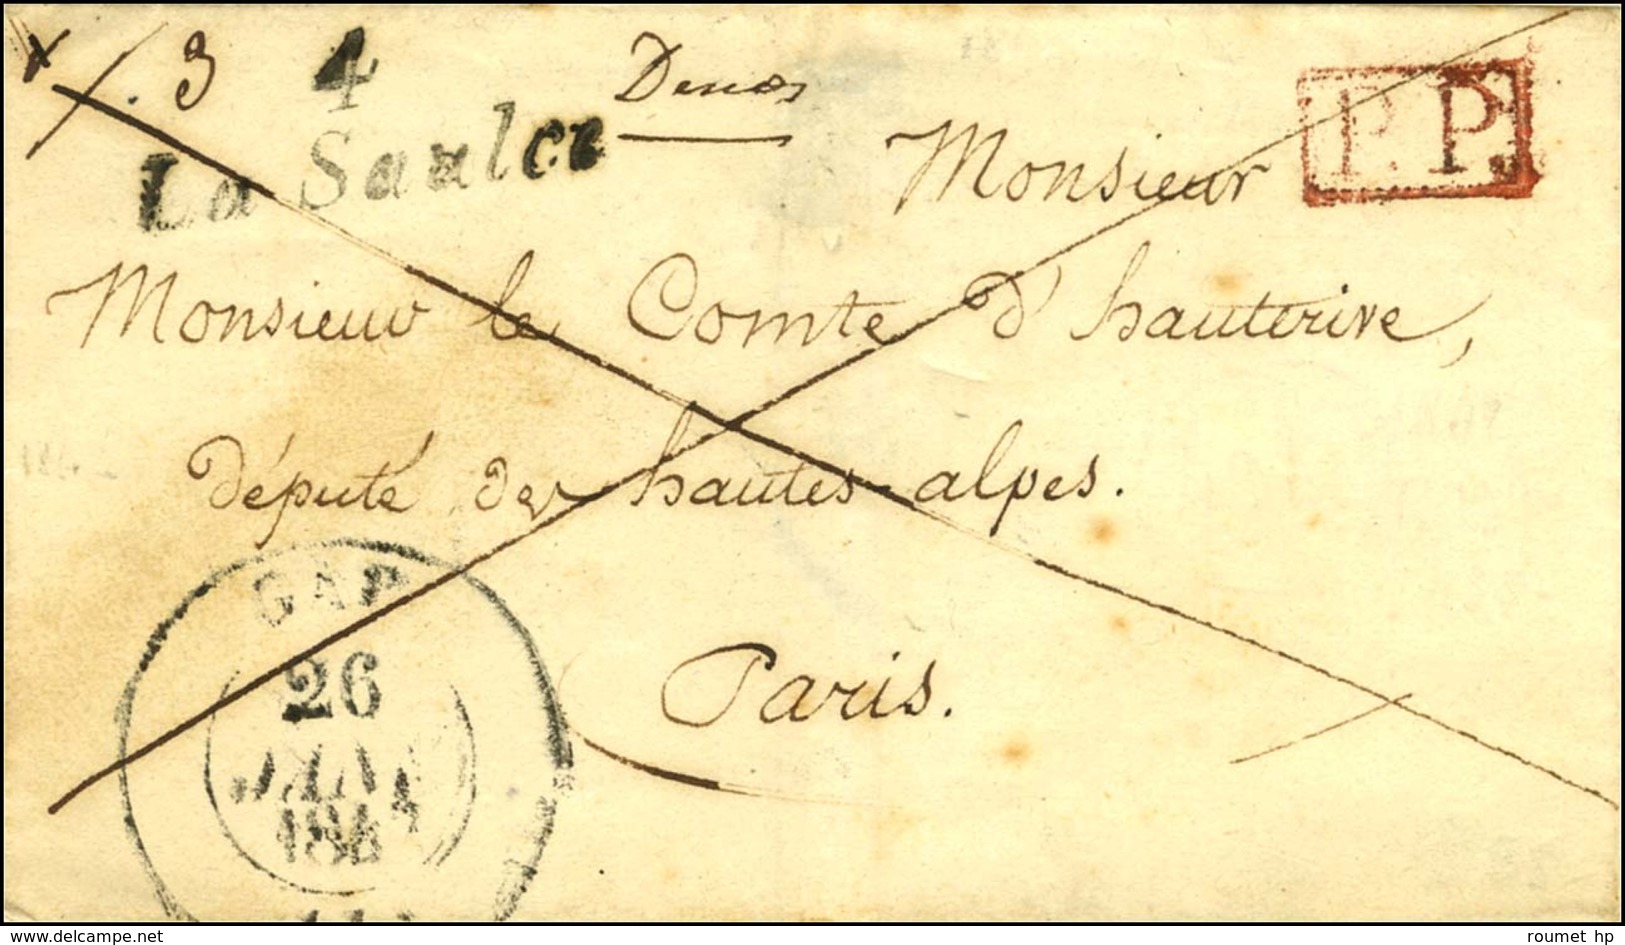 3 4
La Saulce
P.P.
Monsieur
Monsieur le Comte d'hauterive,
député des hautes-alpes.
Paris.
GAP
26
JANV
184
delcampe.net
roumet hp